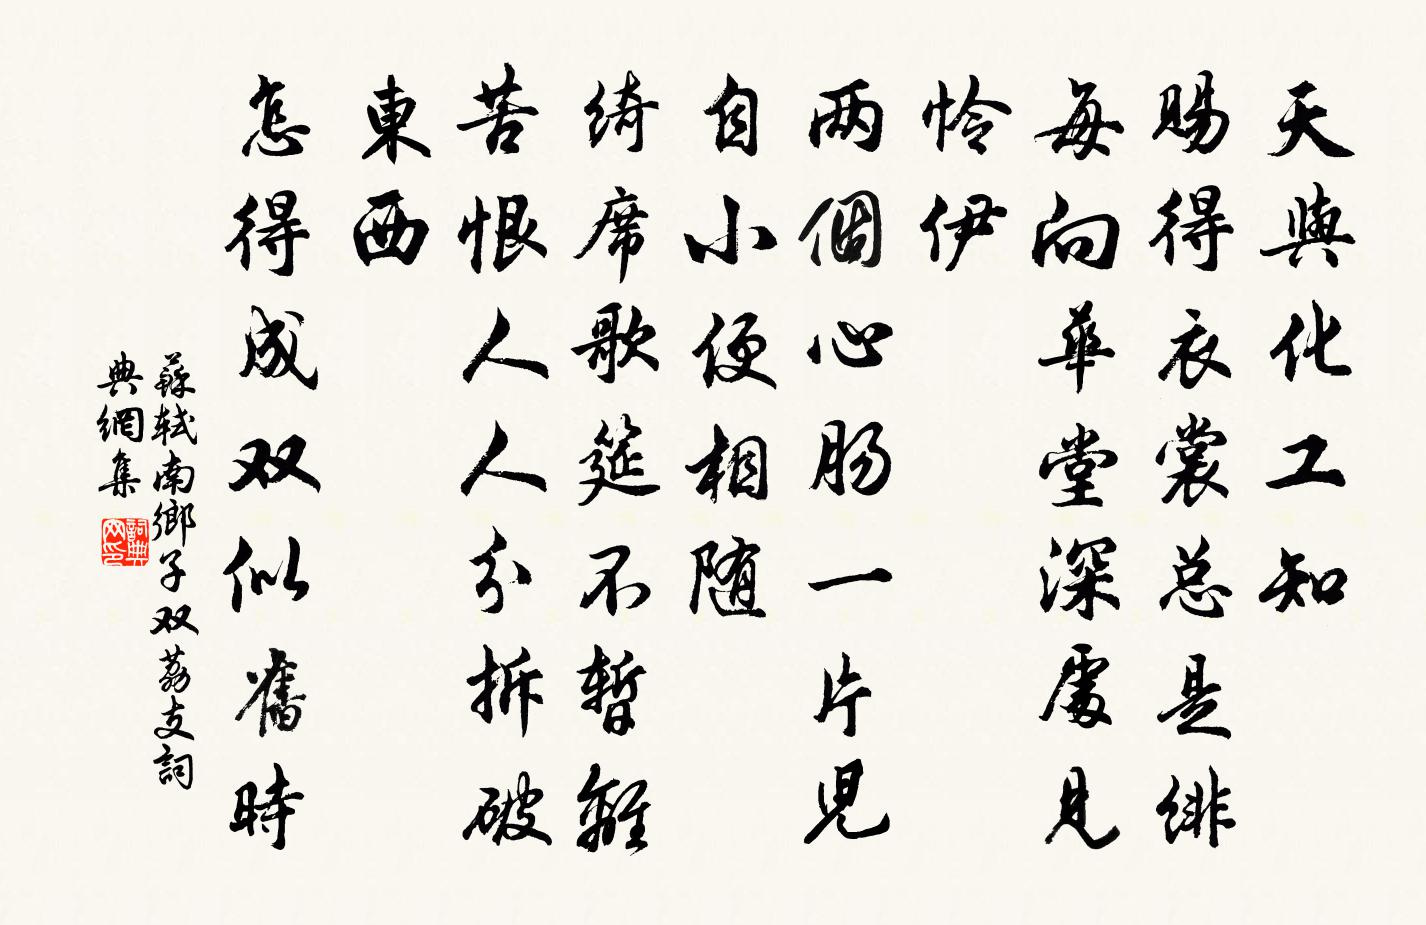 天與化工知
賜得衣裳总是緋
每向華堂深處見
怜伊
两個心肠一片兒
自小便相随
綺席歌筵不暫離
苦恨人人分拆破
東西
怎得成双似舊時
蘇軾南鄉子双荔支詞
典網集
詞典
网印